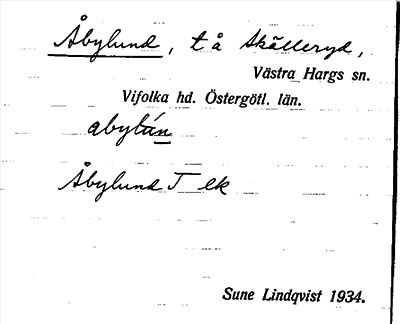 Åbylund, t å Skälleryd,
Västra Hargs sn.
Vifolka hd. Östergötl. län.
abylún
Åbylund T ek
Sune Lindqvist 1934.